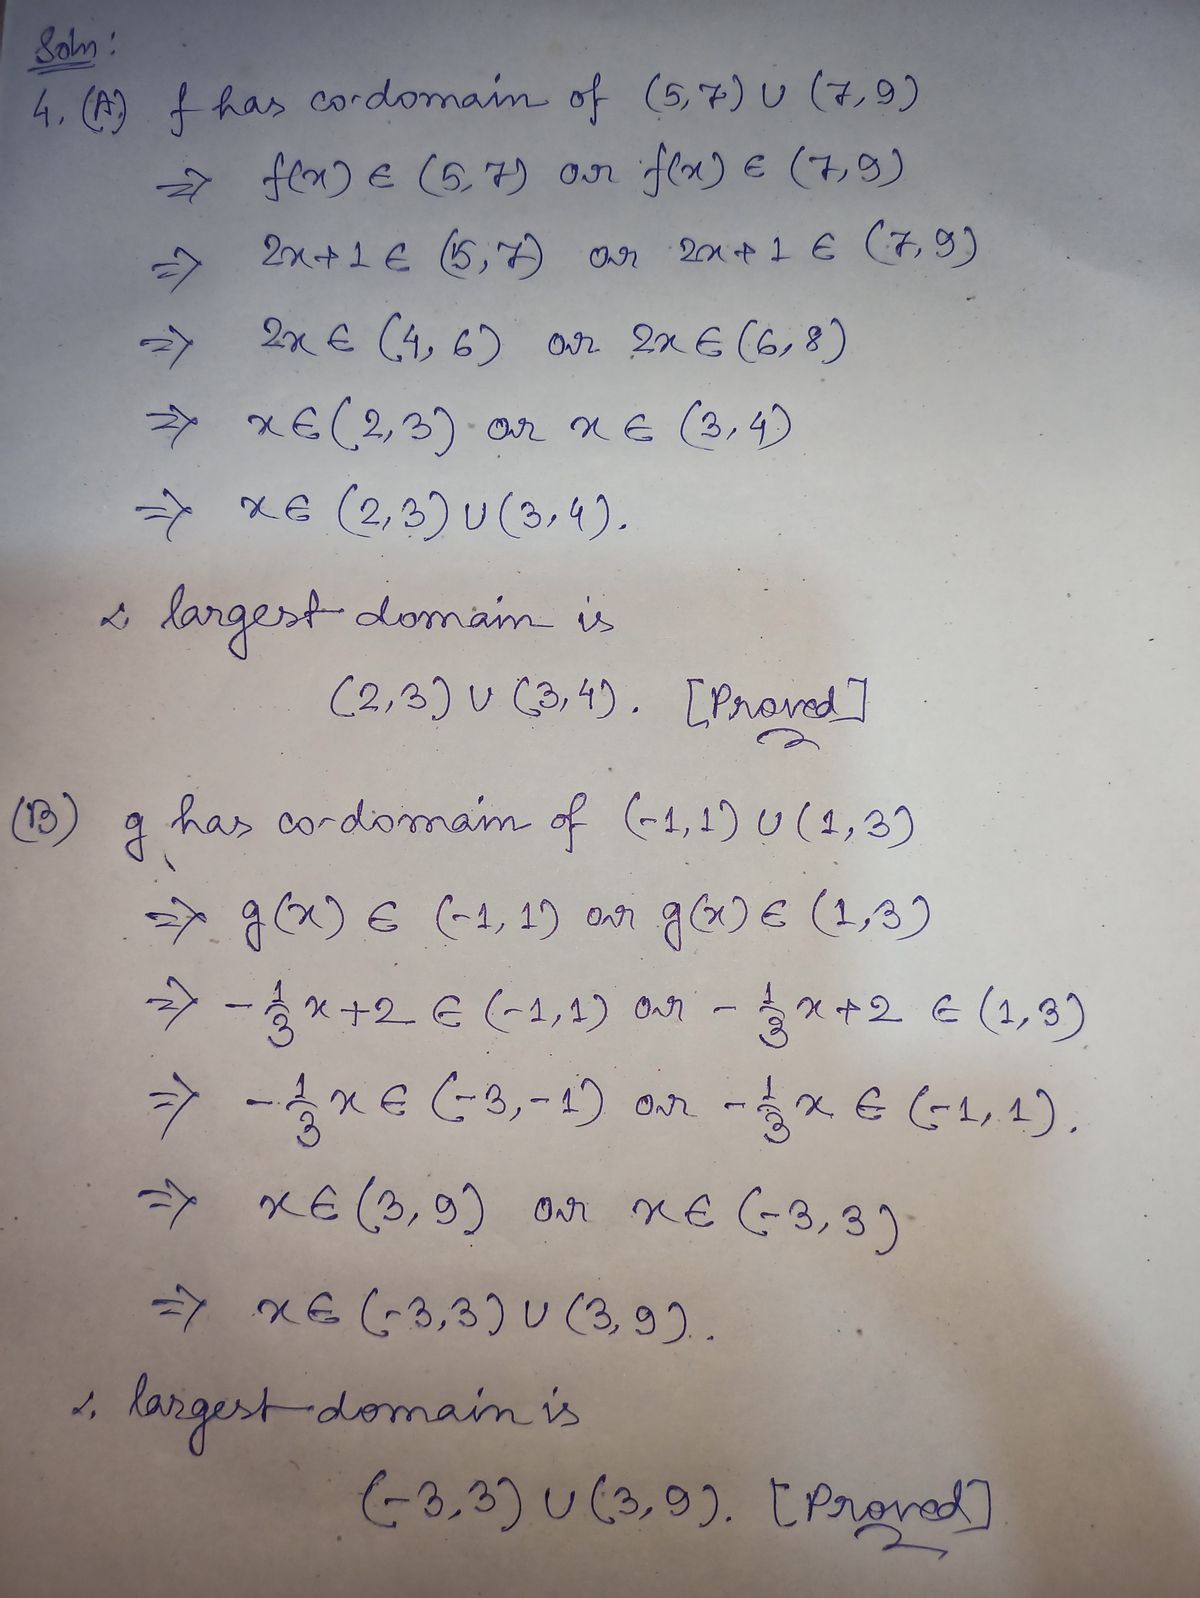 Soln:
4. (A) f has co-domain of (5,7) ∪ (7,9)
⇒ f(x) ∈ (5,7) or f(x) ∈ (7,9)
⇒ 2x+1 ∈ (5,7) or 2x+1 ∈ (7,9)
⇒ 2x ∈ (4,6) or 2x ∈ (6,8)
⇒ x ∈ (2,3) or x ∈ (3,4)
⇒ x ∈ (2,3) ∪ (3,4).
∴ largest domain is
(2,3) ∪ (3,4). [Proved]
(B) g has co-domain of (-1,1) ∪ (1,3)
⇒ g(x) ∈ (-1,1) or g(x) ∈ (1,3)
⇒ -1/3 x+2 ∈ (-1,1) or -1/3 x+2 ∈ (1,3)
⇒ -1/3 x ∈ (-3,-1) or -1/3 x ∈ (-1,1).
⇒ x ∈ (3,9) or x ∈ (-3,3)
⇒ x ∈ (-3,3) ∪ (3,9).
∴ largest domain is
(-3,3) ∪ (3,9). [Proved]